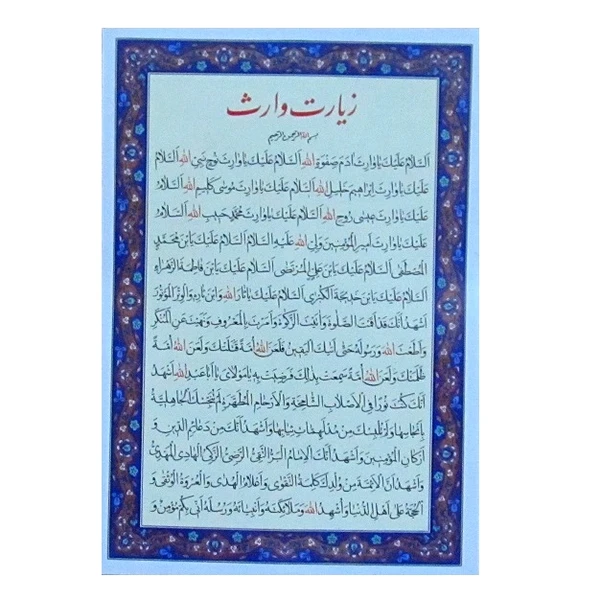 زیارت وارث
بسم الله الرحمن الرحیم
اَلسَّلامُ عَلَیْکَ یا وارِثَ ادَمَ صِفْوَةِ اللهِ اَلسَّلامُ عَلَیْکَ یا وارِثَ نُوحٍ نَبِیِّ اللهِ اَلسَّلامُ
عَلَیْکَ یا وارِثَ اِبْراهیمَ خَلیلِ اللهِ اَلسَّلامُ عَلَیْکَ یا وارِثَ مُوسی کَلیمِ اللهِ اَلسَّلامُ
عَلَیْکَ یا وارِثَ عیسی رُوحِ اللهِ اَلسَّلامُ عَلَیْکَ یا وارِثَ مُحَمَّدٍ حَبیبِ اللهِ اَلسَّلامُ
عَلَیْکَ یا وارِثَ اَمیرِ الْمُؤْمِنینَ وَلِیِّ اللهِ عَلَیْهِ السَّلامُ اَلسَّلامُ عَلَیْکَ یَابْنَ مُحَمَّدٍ
الْمُصْطَفی اَلسَّلامُ عَلَیْکَ یَابْنَ عَلِیٍّ الْمُرْتَضی اَلسَّلامُ عَلَیْکَ یَابْنَ فاطِمَةَ الزَّهْراءِ
اَلسَّلامُ عَلَیْکَ یَابْنَ خَدیجَةَ الْکُبْری اَلسَّلامُ عَلَیْکَ یا ثارَ اللهِ وَابْنَ ثارِهِ وَالْوِتْرَ الْمَوْتُورَ
اَشْهَدُ اَنَّکَ قَدْ اَقَمْتَ الصَّلوةَ وَآتَیْتَ الزَّکوةَ وَاَمَرْتَ بِالْمَعْرُوفِ وَنَهَیْتَ عَنِ الْمُنْکَرِ
وَاَطَعْتَ اللهَ وَرَسُولَهُ حَتّی اَتیکَ الْیَقینُ فَلَعَنَ اللهُ اُمَّةً قَتَلَتْکَ وَلَعَنَ اللهُ اُمَّةً
ظَلَمَتْکَ وَلَعَنَ اللهُ اُمَّةً سَمِعَتْ بِذلِکَ فَرَضِیَتْ بِهِ یا مَوْلایَ یا اَبا عَبْدِ اللهِ اَشْهَدُ
اَنَّکَ کُنْتَ نُوراً فِی الْاَصْلابِ الشّامِخَةِ وَالْاَرْحامِ الْمُطَهَّرَةِ لَمْ تُنَجِّسْکَ الْجاهِلِیَّةُ
بِاَنْجاسِها وَلَمْ تُلْبِسْکَ مِنْ مُدْلَهِمّاتِ ثِیابِها وَاَشْهَدُ اَنَّکَ مِنْ دَعائِمِ الدّینِ وَ
اَرْکانِ الْمُؤْمِنینَ وَاَشْهَدُ اَنَّکَ الْاِمامُ الْبَرُّ التَّقِیُّ الرَّضِیُّ الزَّکِیُّ الْهادِی الْمَهْدِیُّ
وَاَشْهَدُ اَنَّ الْاَئِمَّةَ مِنْ وُلْدِکَ کَلِمَةُ التَّقْوی وَاَعْلامُ الْهُدی وَالْعُرْوَةُ الْوُثْقی وَ
الْحُجَّةُ عَلی اَهْلِ الدُّنْیا وَاُشْهِدُ اللهَ وَمَلائِکَتَهُ وَاَنْبِیائَهُ وَرُسُلَهُ اَنّی بِکُمْ مُؤْمِنٌ وَ